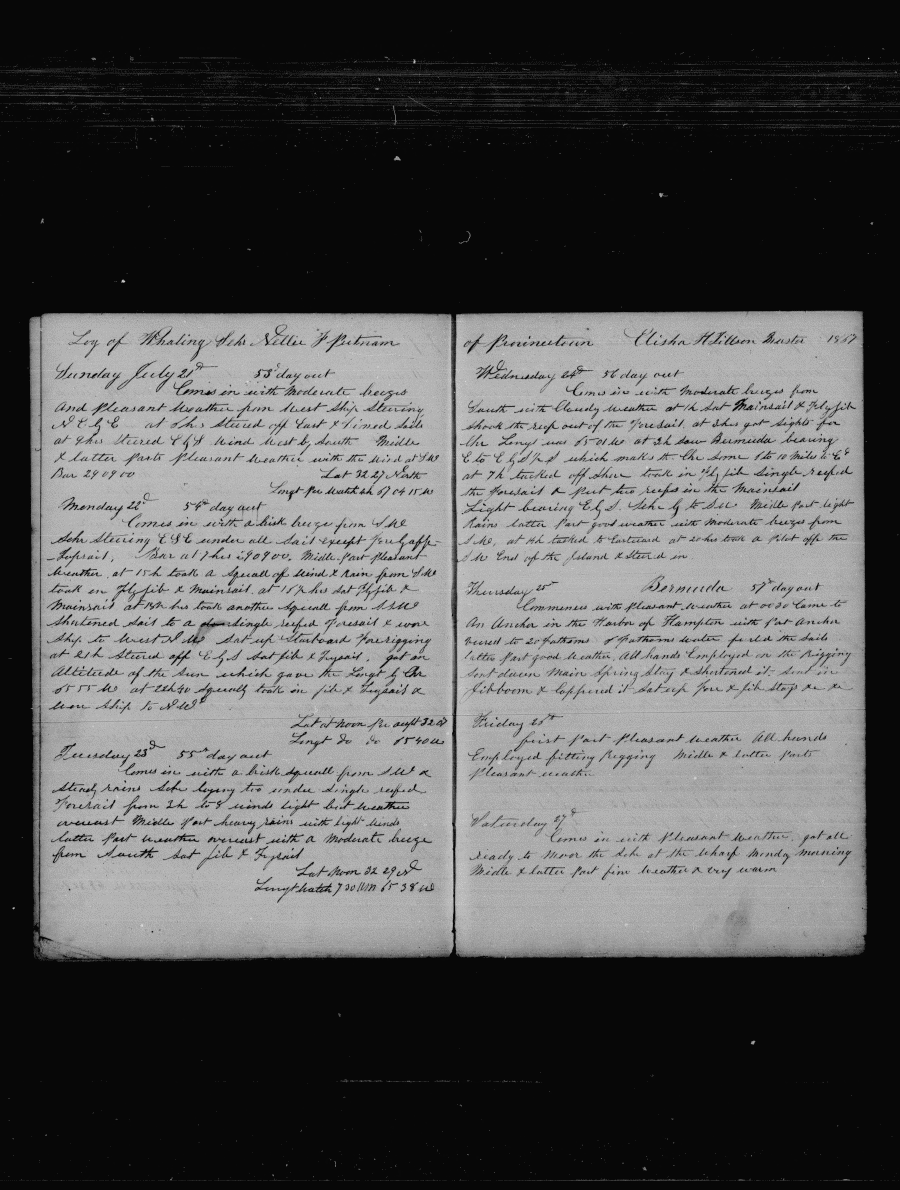 Log of Whaling Schr Nellie F Putnam
Sunday July 21st 53d day out
Comes in with moderate breezes
and Pleasant Weather from West Ship Steering
N E by E at 6 hs steered off East & trimed Sails
at 9 hrs steered E by S Wind West by South Middle
& latter Parts Pleasant weather with the wind at S W
Bar 29 09 00 Lat 32 27 North
Longt Per Watch 4h 67 04 15 W
Monday 22d 54th day out
Comes in with a brisk breeze from S W
Schr Steering E S E under all Sail except Fore Gaff-
Topsail, Bar at 7 hrs 29 09 00. Middle Part Pleasant
Weather, at 15 h took a Squall of wind & rain from S W
took in Flyjib & Mainsail, at 15½ hrs Sat Flyjib &
Mainsail at hrs took another Squall from S S W
Shortened Sail to a Single reefed Foresail & wore
Ship to West N W Sat up Starboard Fore rigging
at 21h Steered off E by S Sat jib & Trysail, got an
Altitude of the Sun which gave the Longt by Chr
65 55 W at 22h 40 Squally took in jib & Trysail &
Wore Ship to N W
Lat at Noon Per acct 32 07
Longt Do do 65 40 W
Tuesday 23d 55th day out
Comes in with a brisk Squall from S W &
Steady rains Schr laying too under Single reefed
Foresail from 2h to 8 winds light but weather
overcast Middle Part heavy rains with light winds
latter Part weather overcast with a moderate breeze
from South Sat jib & Trysail
Lat Noon 32 29 N
Longt Watch 7 30 AM 65 38 W
of Provincetown Elisha H Tillson Master 1867
Wednesday 24th 56 day out
Comes in with Moderate breezes from
South with Cloudy Weather at 1h Sat Mainsail & Flyjib
Shook the reef out of the Foresail, at 2 hrs got sights for
Chr Longt was 65 01 W at 3h saw Bermuda bearing
E to E by S ½ S which makes the Chr some 8 to 10 Miles to Ed
at 7h tacked off Shore took in Flyjib Single reefed
the Foresail & Put two reefs in the Mainsail
Light bearing E by S. Schr by to S W Middle Part light
Rains latter Part good weather with moderate breezes from
S W, at 14h tacked to Eastward at 20 hrs took a Pilot off the
S W End of the Island & Steered in
Thursday 25th Bermuda 57th day out
Commences with Pleasant Weather at 00 30 Came to
An Anchor in the Harbor of Hampton with Port Anchor
veered to 20 Fathoms 7 Fathoms water furled the Sails
latter Part good Weather All hands Employed on the Rigging
Sent down Main Spring Stay & Shortened it. Sent in
Jibboom & Coppered it Sat up Fore & jib Stays &c &c
Friday 26th
first Part Pleasant Weather All hands
Employed fitting Rigging Middle & latter Parts
Pleasant weather
Saturday 27th
Comes in with Pleasant Weather, got all
ready to Moor the Schr at the Wharf Monday morning
Middle & latter Part fine Weather & very warm